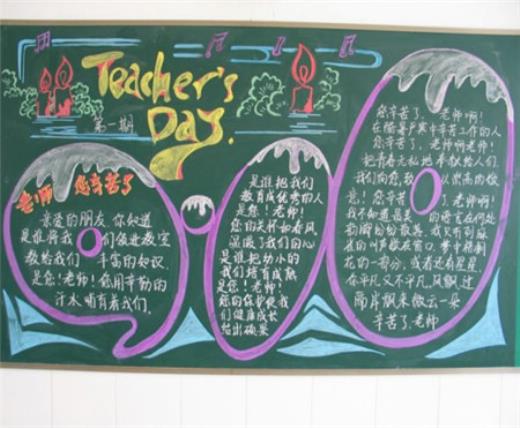 Teacher's
Day.
第一期
老师 您辛苦了
亲爱的朋友 你知道
是谁将我们 们领进教室
教给我们 丰富的知识.
是您!老师!您用辛勤的
汁水哺育着我们.
是谁把我们
教育成优秀的人
是您!老师!
您的关怀如春风
温暖了我们的心
是谁把幼小的
我们培育成熟
是您!老师!
您的保护使我
们健康成长
结出硕果
您辛苦了.老师啊!
在酷暑严寒中辛苦工作的人
您辛苦了.老师啊老师!
把青春无私地奉献给人们.
我们向您致 以崇高的
您!您辛苦 了.老师啊!
我不知道最美 的语言在何处
的叫声 窗口.梦中
花的一部分,或者还有星星
你平凡又不平凡,风飘过
高岸飘来做云一朵
辛苦了.老师